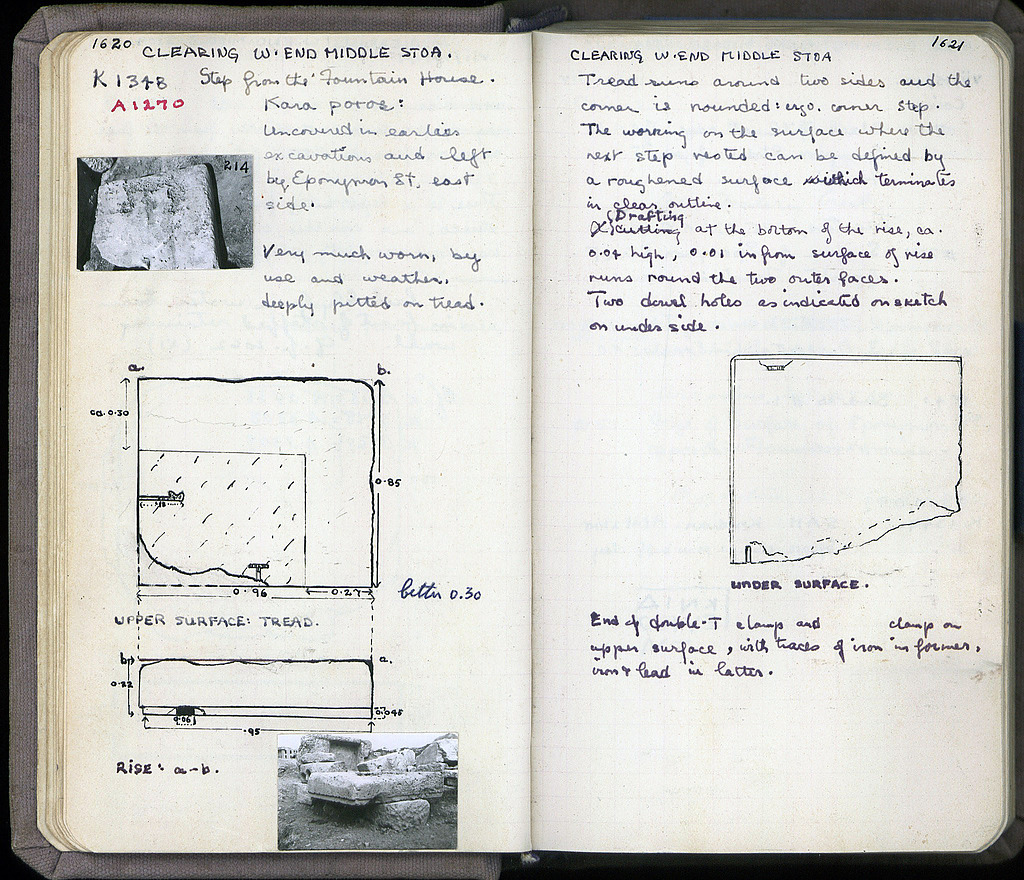 1620
CLEARING W. END MIDDLE STOA.
K 1348 Step from the Fountain House.
A1270
Kara poros:
Uncovered in earlier
excavations and left
by Eponymon St, east
side.
214
Very much worn, by
use and weather,
deeply pitted on tread.
a. b.
ca. 0.30
0.85
.18
0.96 0.27 better 0.30
UPPER SURFACE: TREAD.
b. a.
0.22
0.06 0.045
.95
RISE: a-b.
1621
CLEARING W. END MIDDLE STOA
Tread runs around two sides and the
corner is rounded: ergo. corner step.
The working on the surface where the
next step rested can be defined by
a roughened surface which terminates
in clear outline.
Drafting
cutting at the bottom of the rise, ca.
0.04 high, 0.01 in from surface of rise
runs round the two outer faces.
Two dowel holes as indicated on sketch
on under side.
UNDER SURFACE.
End of double-T clamp and clamp on
upper surface, with traces of iron in former,
iron & lead in latter.